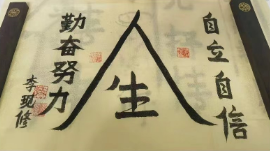 自立自信
人生
勤奋努力
李现修